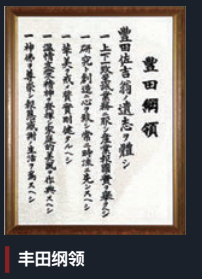 豊田綱領
豊田佐吉翁ノ遺志ヲ體シ
一 上下一致至誠業務ニ服シ産業報國ノ實ヲ擧クヘシ
一 研究ト創造ニ心ヲ致シ常ニ時流ニ先ンスヘシ
一 華美ヲ戒メ質實剛健タルヘシ
一 溫情友愛ノ精神ヲ發揮シ家庭的美風ヲ作興スヘシ
一 神佛ヲ尊崇シ報恩感謝ノ生活ヲ爲スヘシ
丰田纲领